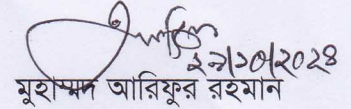 ২৭/১০/২০২৪
মুহাম্মদ আরিফুর রহমান